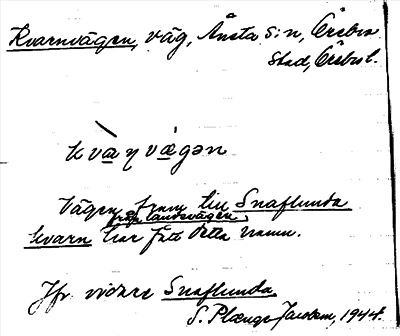 Kvarnvägen, väg, Ånsta s:n, Örebro
stad, Örebro l.
kvàɳvǽgən
Vägen fram till Snaflunda
från landsvägen
kvarn har fått detta namn.
Jfr vidare Snaflunda.
S. Plænge Jacobson, 1944.